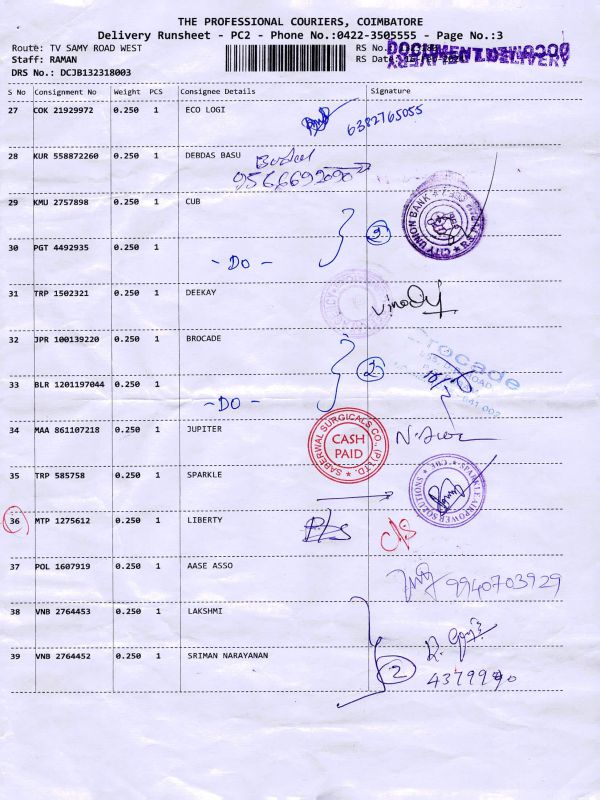 THE PROFESSIONAL COURIERS, COIMBATORE
Delivery Runsheet - PC2 - Phone No.:0422-3505555 - Page No.:3
Route: TV SAMY ROAD WEST RS No.
Staff: RAMAN RS Date
DRS No.: DCJB132318003
S No Consignment No Weight PCS Consignee Details Signature
27 COK 21929972 0.250 1 ECO LOGI 6382765055
28 KUR 558872260 0.250 1 DEBDAS BASU
9566692090
29 KMU 2757898 0.250 1 CUB CITY UNION BANK
30 PGT 4492935 0.250 1 - DO - 2
31 TRP 1502321 0.250 1 DEEKAY Vinody
32 JPR 100139220 0.250 1 BROCADE Brocade
33 BLR 1201197044 0.250 1 - DO - 2
34 MAA 861107218 0.250 1 JUPITER SABERWAL SURGICALS CO., (P) LTD. CASH PAID
35 TRP 585758 0.250 1 SPARKLE SPARKLE AIRPOWER SOLUTIONS
36 MTP 1275612 0.250 1 LIBERTY C/S
37 POL 1607919 0.250 1 AASE ASSO 9940703929
38 VNB 2764453 0.250 1 LAKSHMI
39 VNB 2764452 0.250 1 SRIMAN NARAYANAN 2 4379990